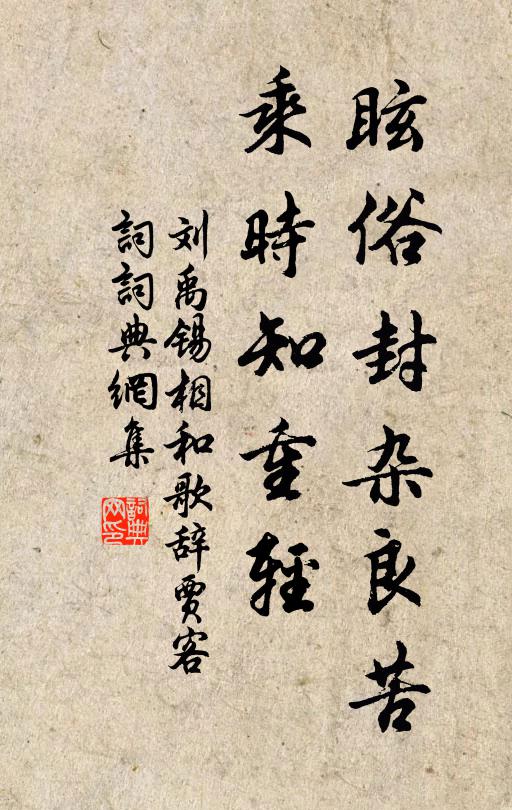 眩俗封杂良苦
乘時知重輕
刘禹锡相和歌辞賈客
詞詞典網集
詞典网印